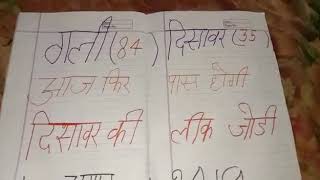 गली(84) दिसावर(35)
आज फिर पास होगी
दिसावर की लीक जोड़ी